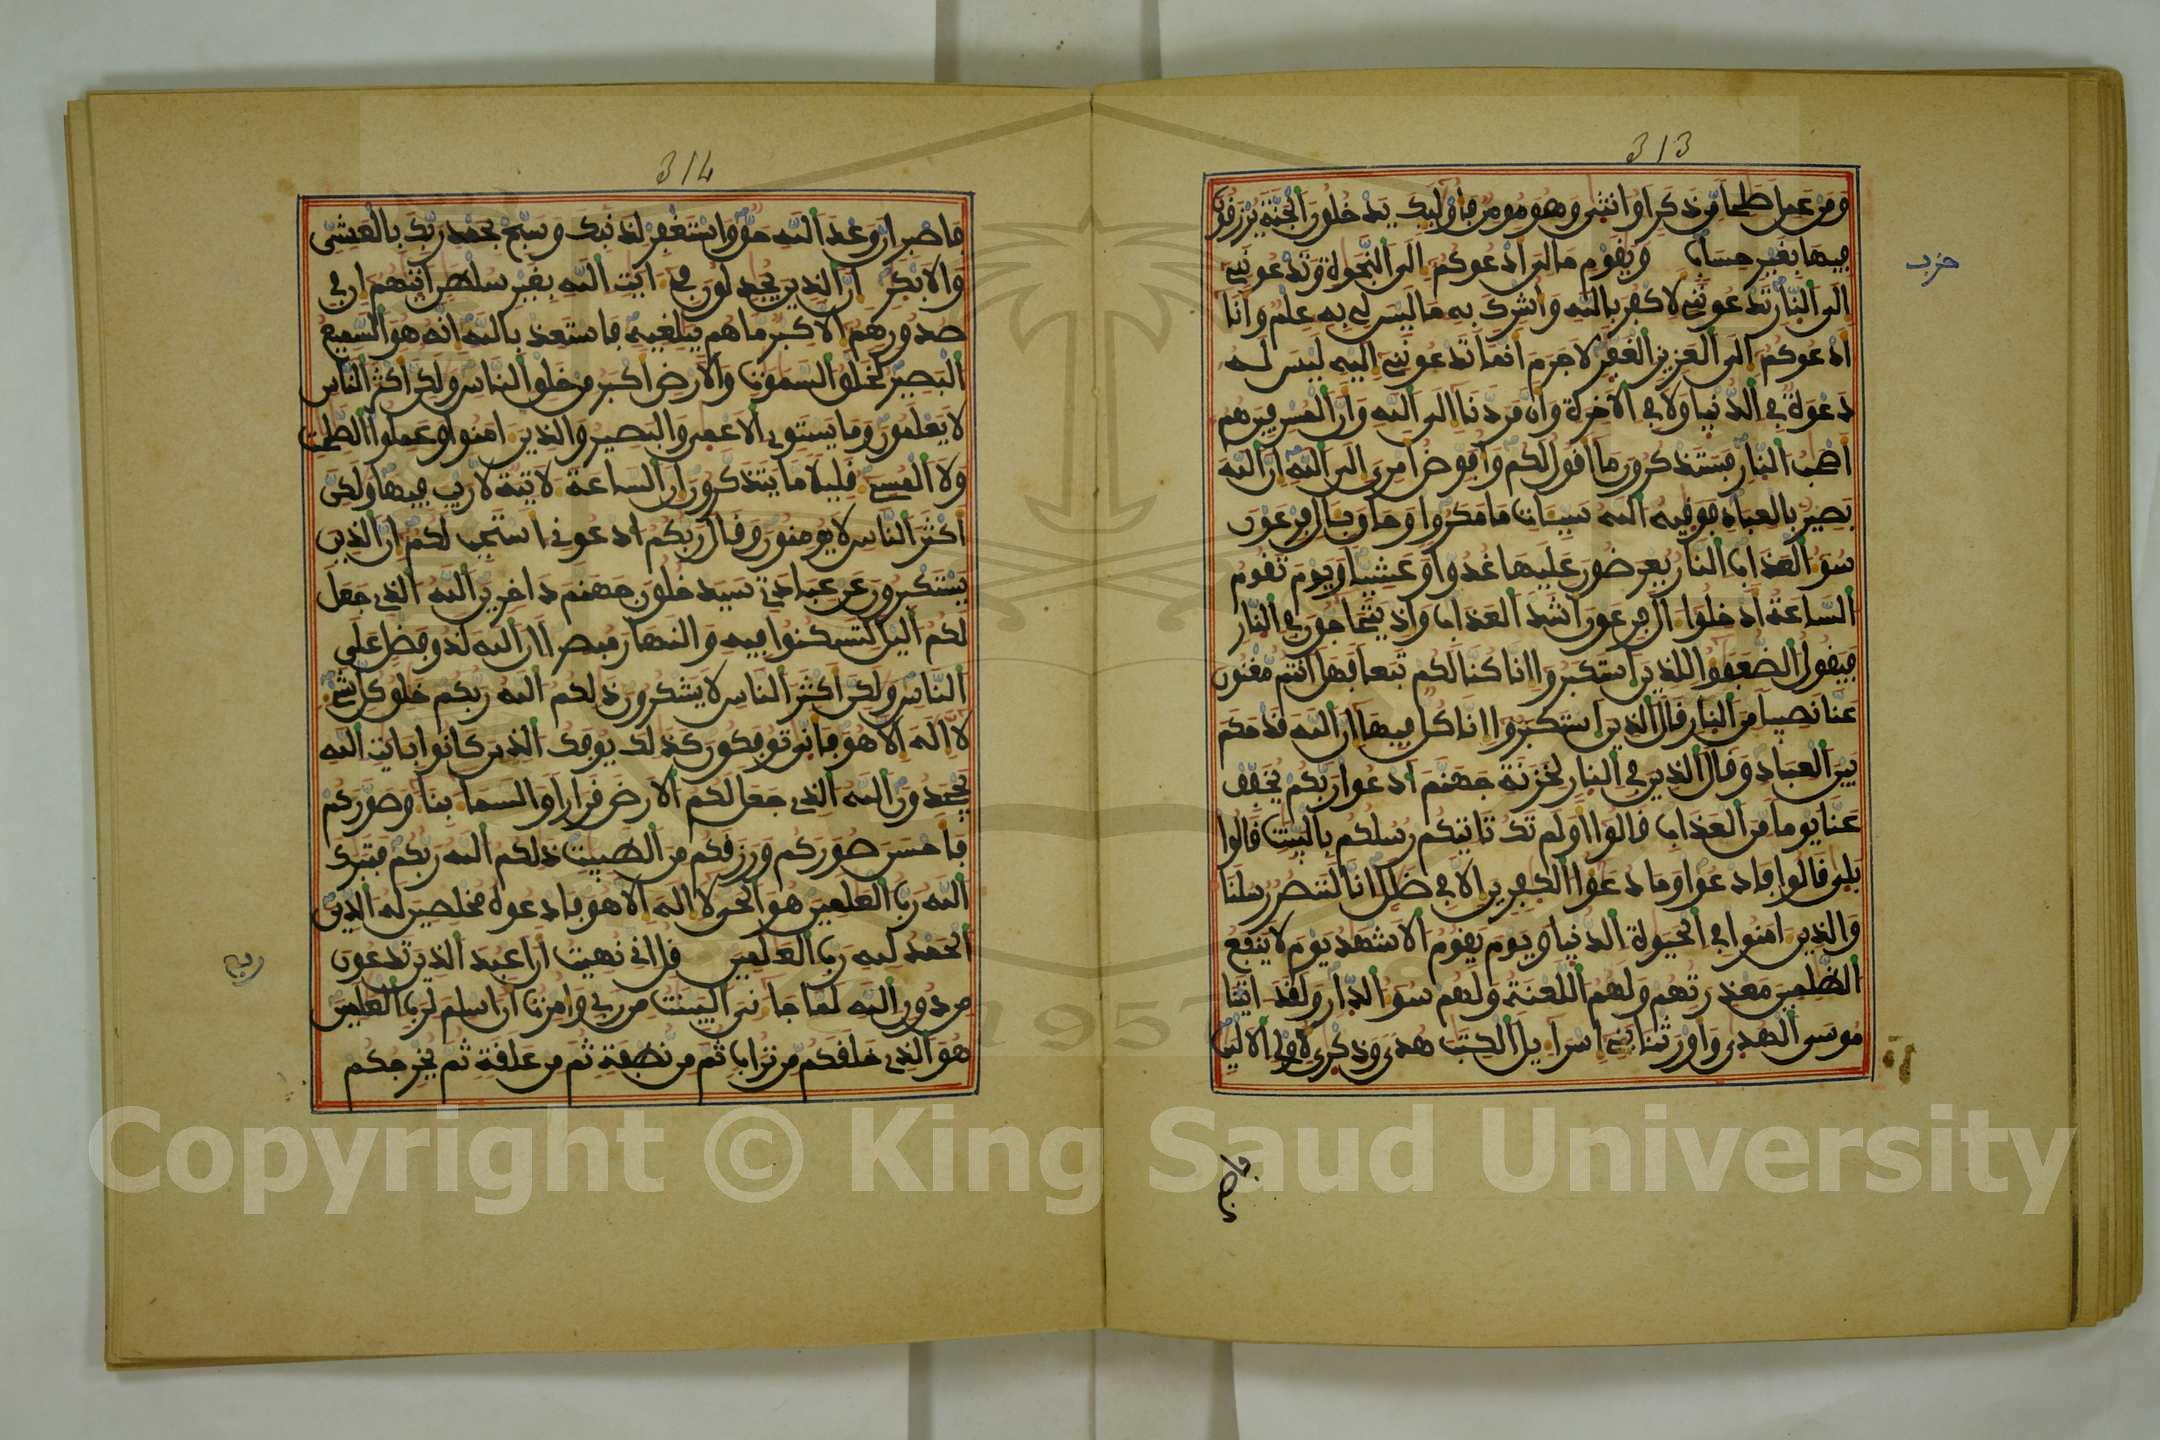 313
ومن عمل صلحا من ذكر او انثى وهو مومن فاوليك يدخلون الجنة يرزقون
فيها بغير حساب ويقوم مالى ادعوكم الى النجوة وتدعوننى
حزب
الى النار تدعوننى لاكفر بالله واشرك به ما ليس لى به علم وانا
ادعوكم الى العزيز الغفر لا جرم انما تدعوننى اليه ليس له
دعوة فى الدنيا ولا فى الاخرة وان مردنا الى الله وان المسرفين هم
اصحب النار فستذكرون ما اقول لكم وافوض امرى الى الله ان الله
بصير بالعباد فوقيه الله سييات ما مكروا وحاق بال فرعون
سو العذاب النار يعرضون عليها غدوا وعشيا ويوم تقوم
الساعة ادخلوا ال فرعون اشد العذاب واذ يتحاجون فى النار
فيقول الضعفوا للذين استكبروا انا كنا لكم تبعا فهل انتم مغنون
عنا نصيبا من النار قال الذين استكبروا انا كل فيها ان الله قد حكم
بين العباد وقال الذين فى النار لخزنة جهنم ادعوا ربكم يخفف
عنا يوما من العذاب قالوا اولم تك تاتيكم رسلكم بالبينت قالوا
بلى قالوا فادعوا وما دعوا الكفرين الا فى ضلل انا لننصر رسلنا
والذين امنوا فى الحيوة الدنيا ويوم يقوم الاشهد يوم لا ينفع
الظلمين معذرتهم ولهم اللعنة ولهم سو الدار ولقد اتينا
موسى الهدى واورثنا بنى اسرايل الكتب هدى وذكرى لاولى الالبب
فاصبر
314
فاصبر ان وعد الله حق واستغفر لذنبك وسبح بحمد ربك بالعشى
والابكر ان الذين يجدلون فى ايت الله بغير سلطن اتيهم ان فى
صدورهم الا كبر ما هم ببلغيه فاستعذ بالله انه هو السميع
البصير لخلق السموت والارض اكبر من خلق الناس ولكن اكثر الناس
لا يعلمون وما يستوى الاعمى والبصير والذين امنوا وعملوا الصلحت
ولا المسى قليلا ما يتذكرون ان الساعة لاتية لا ريب فيها ولكن
اكثر الناس لا يومنون وقال ربكم ادعونى استجب لكم ان الذين
يستكبرون عن عبادتى سيدخلون جهنم داخرين الله الذى جعل
لكم اليل لتسكنوا فيه والنهار مبصرا ان الله لذو فضل على
الناس ولكن اكثر الناس لا يشكرون ذلكم الله ربكم خلق كل شى
لا اله الا هو فانى توفكون كذلك يوفك الذين كانوا بايت الله
يجحدون الله الذى جعل لكم الارض قرارا والسما بنا وصوركم
فاحسن صوركم ورزقكم من الطيبت ذلكم الله ربكم فتبرك
الله رب العلمين هو الحى لا اله الا هو فادعوه مخلصين له الدين
الحمد لله رب العلمين قل انى نهيت ان اعبد الذين تدعون
ربع
من دون الله لما جانى البينت من ربى وامرت ان اسلم لرب العلمين
هو الذى خلقكم من تراب ثم من نطفة ثم من علقة ثم يخرجكم
1957
Copyright © King Saud University